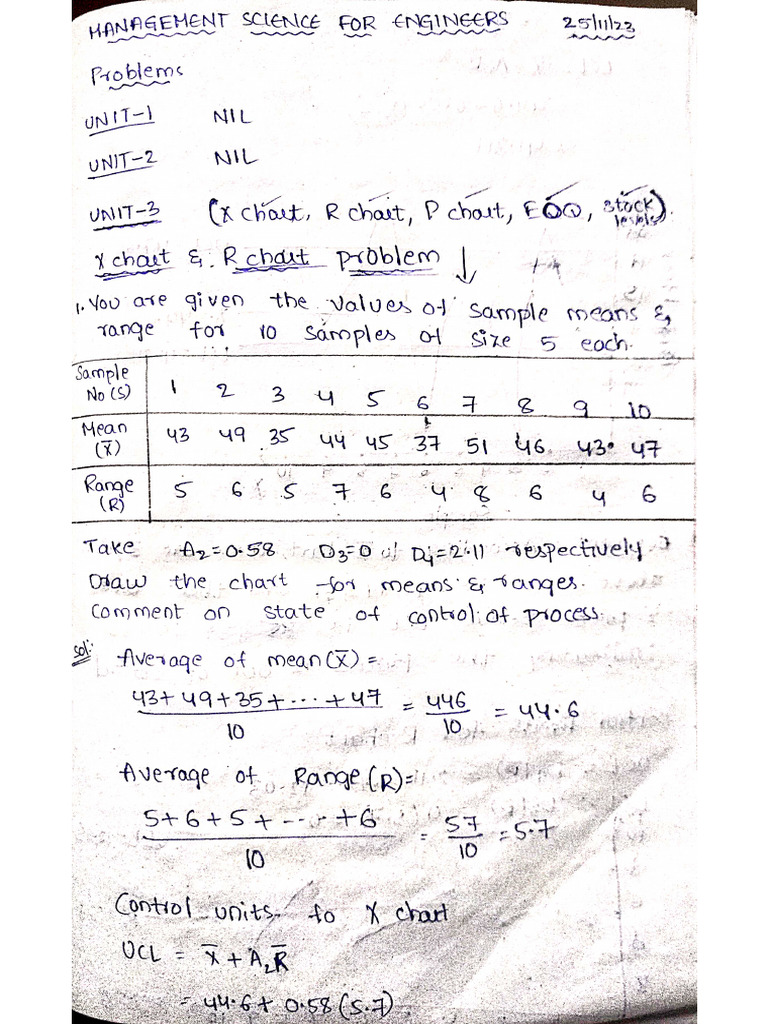 MANAGEMENT SCIENCE FOR ENGINEERS 25/11/23
Problems
UNIT-1 NIL
UNIT-2 NIL
UNIT-3 (X chart, R chart, P chart, EOQ, stock levels).
X chart & R chart problem ↓
1. You are given the values of sample means &
range for 10 samples of size 5 each.
Sample No (S) 1 2 3 4 5 6 7 8 9 10
Mean (X̄) 43 49 35 44 45 37 51 46 43 47
Range (R) 5 6 5 7 6 4 8 6 4 6
Take A₂=0.58 D₃=0 D₄=2.11 respectively
Draw the chart for means & ranges.
Comment on state of control of process.
Sol: Average of mean (X̄) =
43+49+35+...+47 / 10 = 446 / 10 = 44.6
Average of Range (R) =
5+6+5+...+6 / 10 = 57 / 10 = 5.7
Control units to X chart
UCL = X̄ + A₂R̄
= 44.6 + 0.58 (5.7)